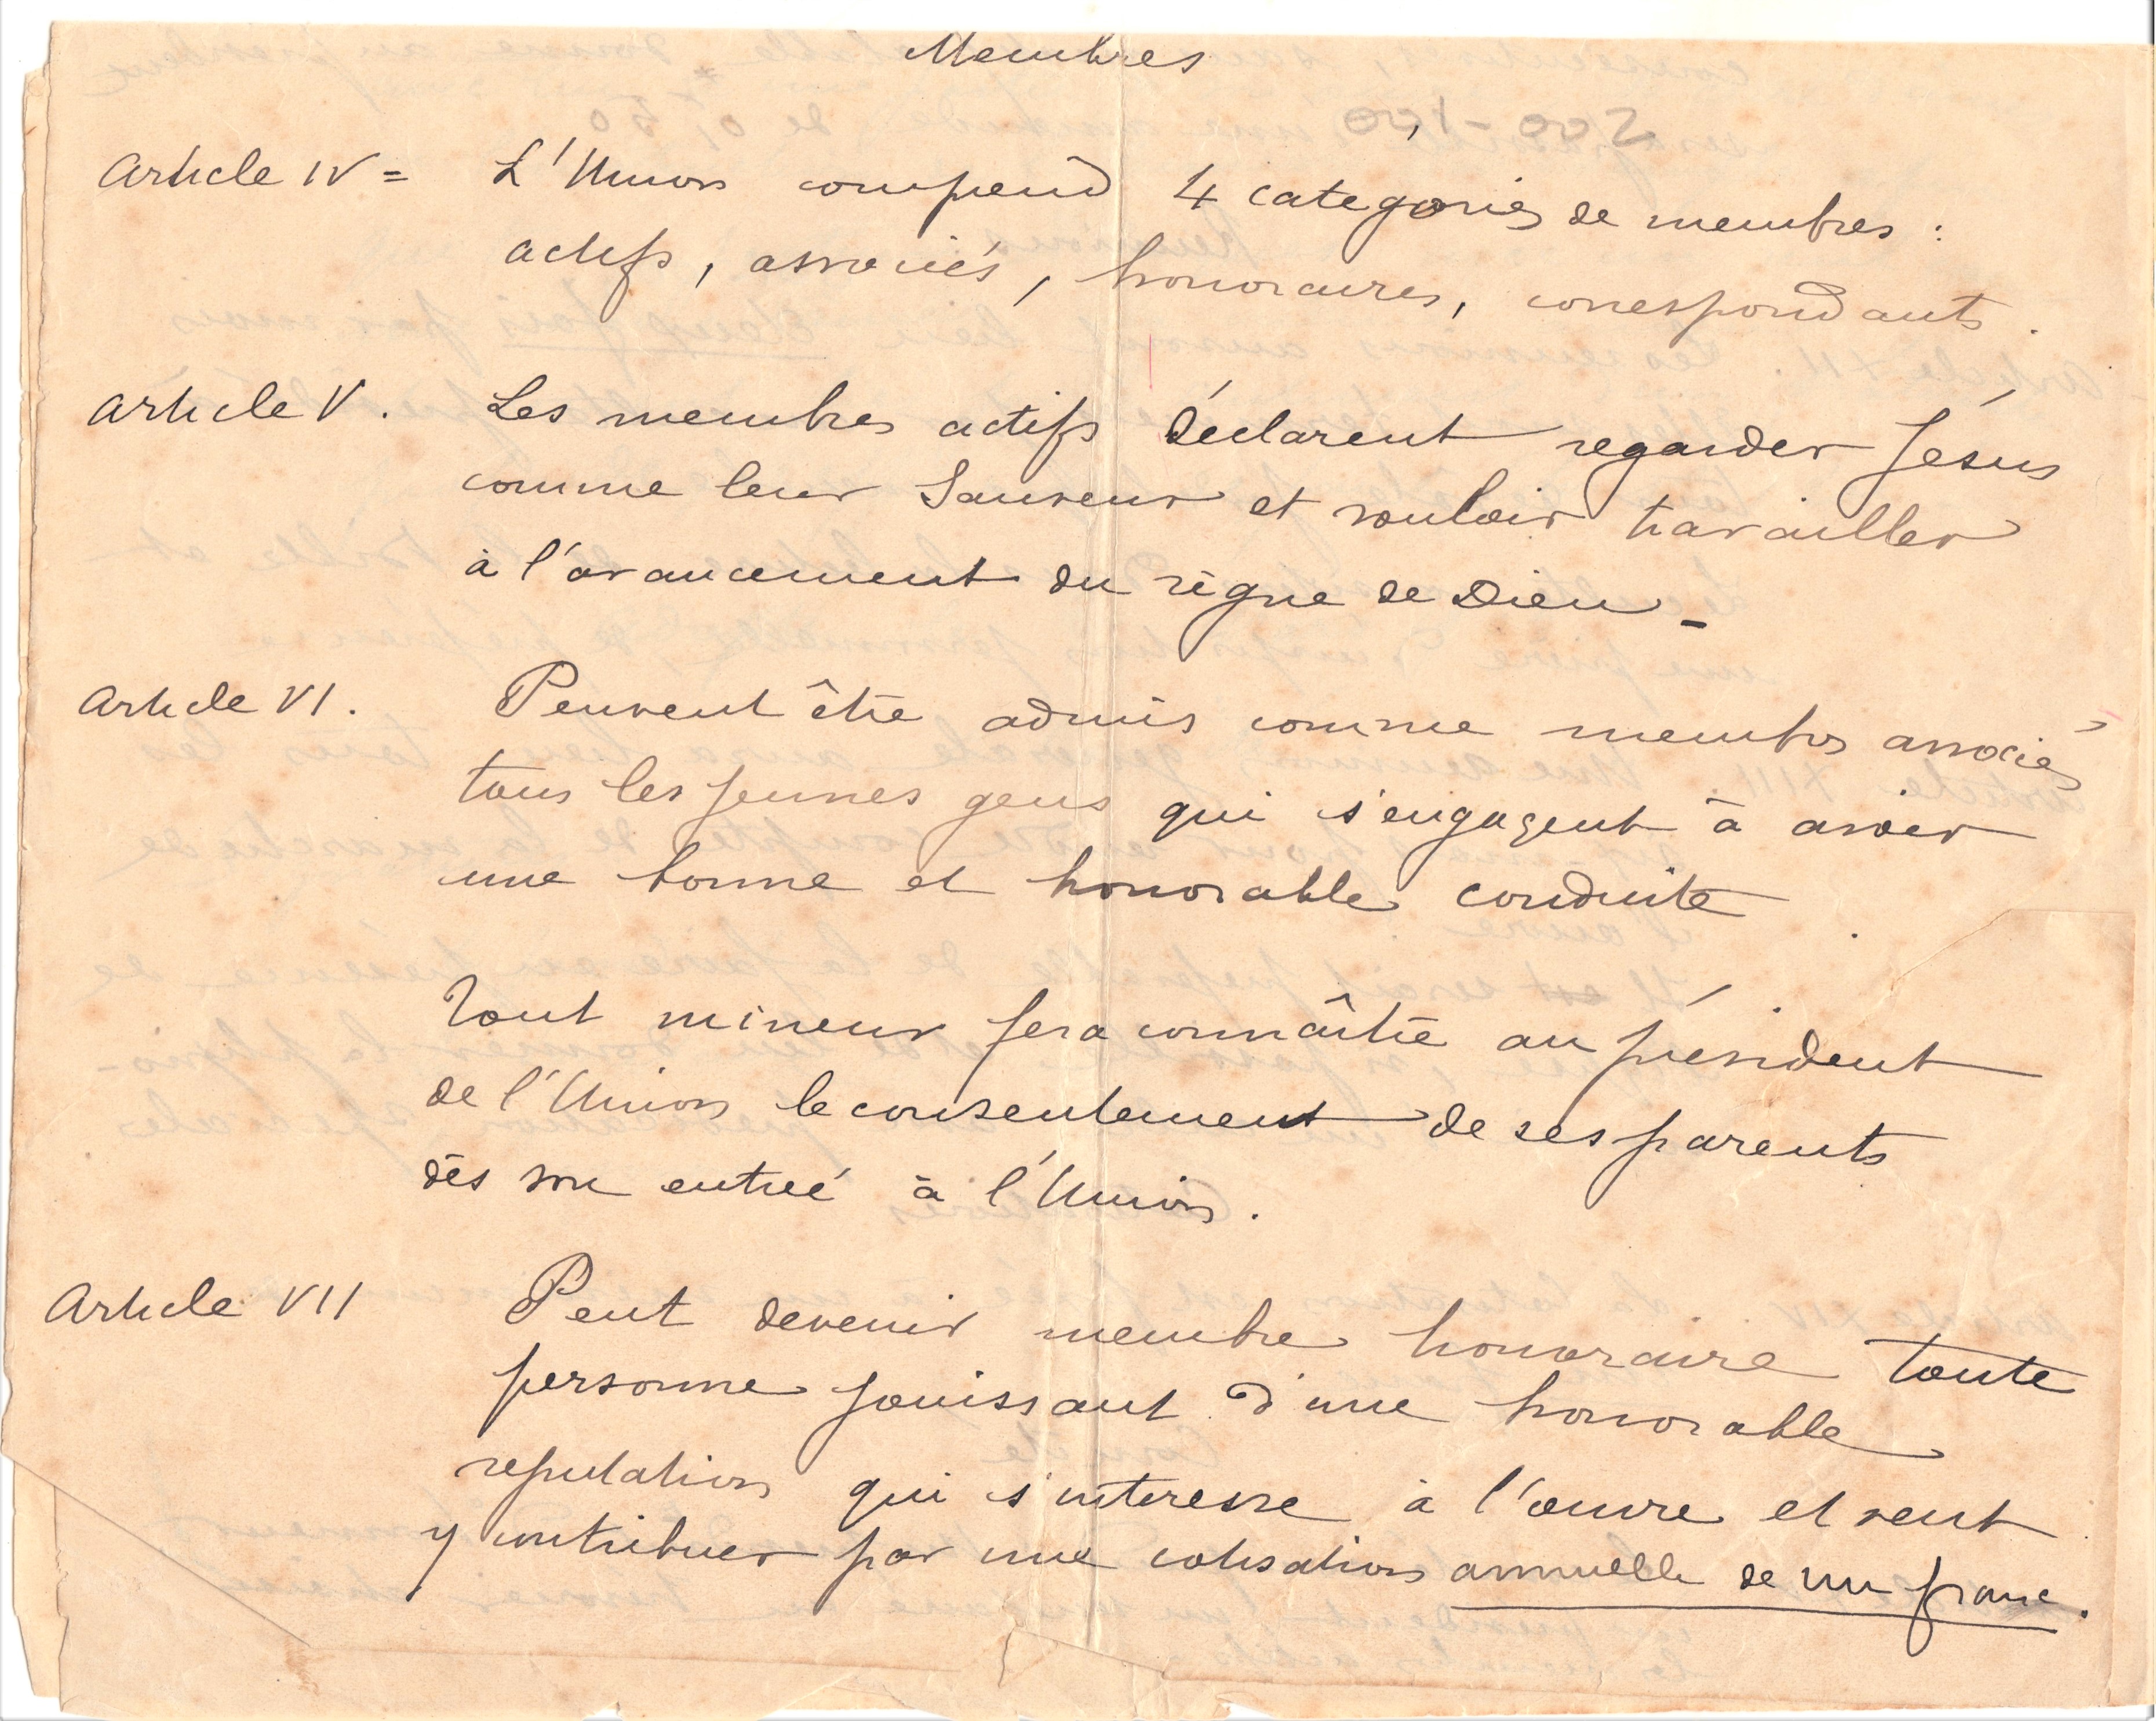 Membres
Article IV = L'Union comprend 4 categories de membres :
actifs, associés, honoraires, correspondants.
Article V. Les membres actifs déclarent regarder Jésus
comme leur Sauveur et vouloir travailler
à l'avancement du règne de Dieu _
Article VI. Peuvent être admis comme membres associés
tous les jeunes gens qui s'engagent à avoir
une bonne et honorable conduite.
Tout mineur fera connaître au président
de l'Union le consentement de ses parents
dès son entreé à l'Union.
Article VII Peut devenir membre honoraire toute
personne jouissant d'une honorable
reputation qui s'interesse à l'œuvre et veut
y contribuer par une cotisation annuelle de un franc.